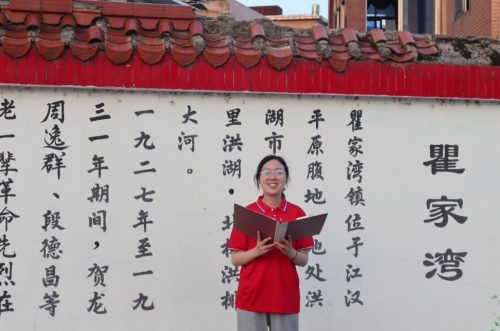 瞿家湾
瞿家湾镇位于江汉
平原腹地地处洪
湖市
里洪湖，北洪排
大河。
一九二七年至一九
三一年期间，贺龙
周逸群、段德昌等
老一辈革命先烈在